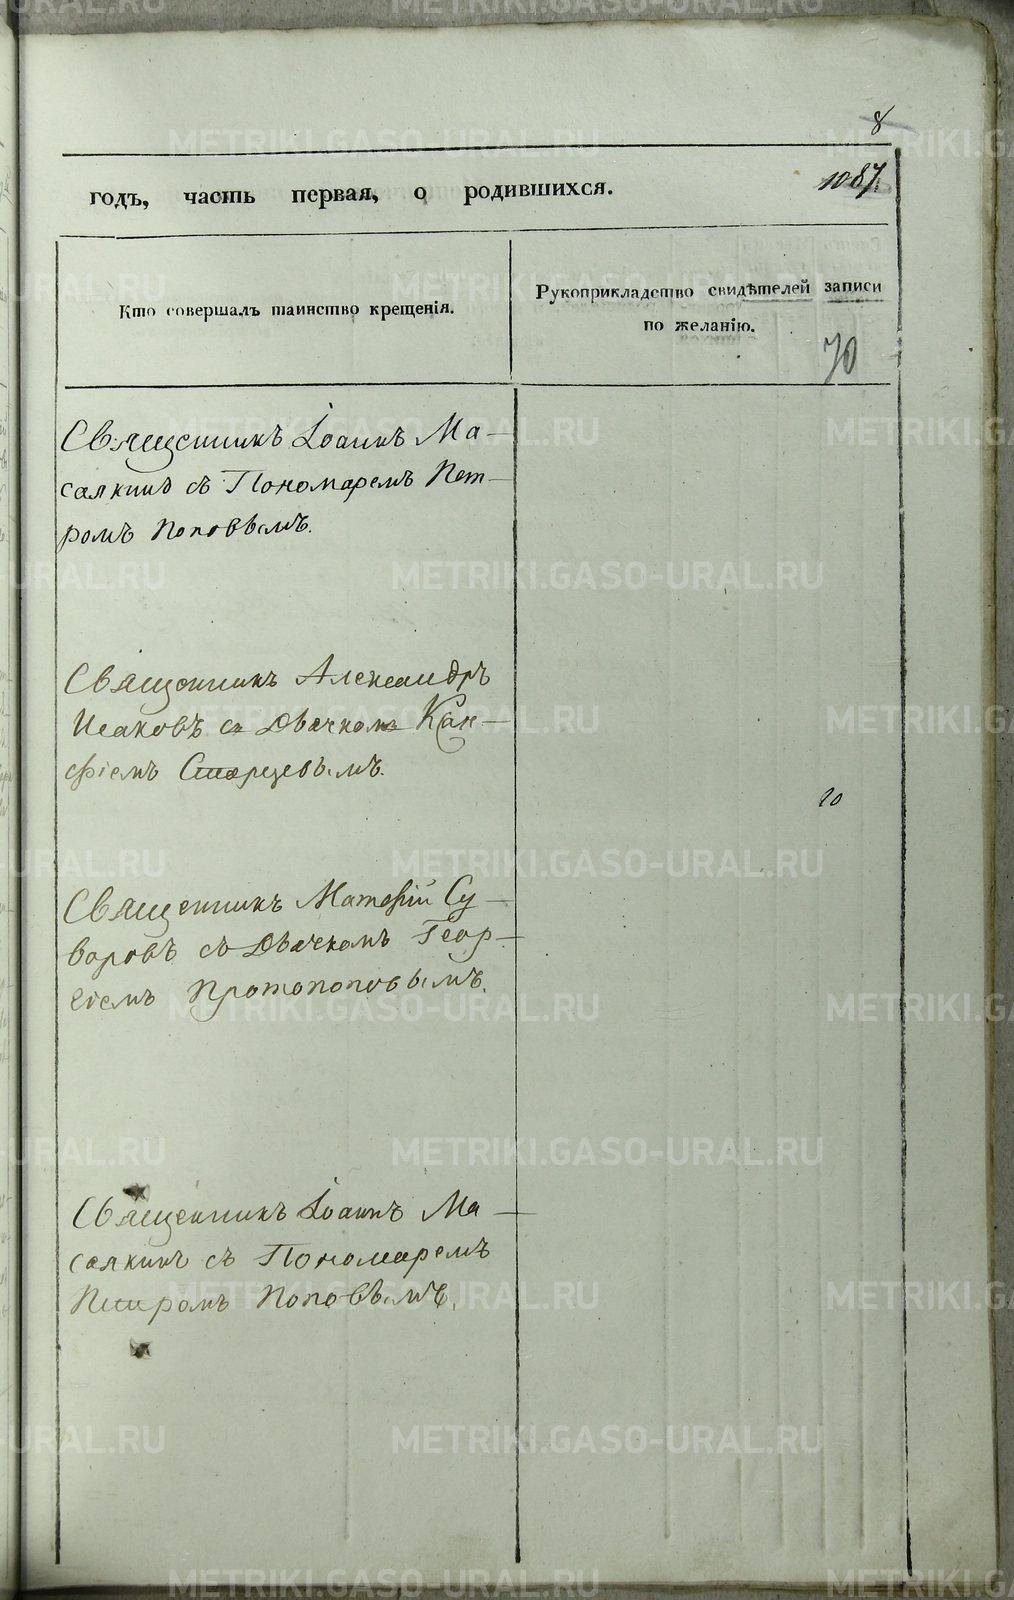 8
годъ, часть первая, о родившихся.
1087.
Кто совершалъ таинство крещенія.
Рукоприкладство свидѣтелей записи
по желанію.
70
Священникъ Іоаннъ Ма-
салкинъ съ Пономаремъ Пет-
ромъ Поповымъ.
Священникъ Александръ
Исаковъ съ Дьячкомъ Кан-
фіемъ Старцевымъ.
20
Священникъ Матѳій Су-
воровъ съ Дьячкомъ Геор-
гіемъ Протопоповымъ.
Священникъ Іоаннъ Ма-
салкинъ съ Пономаремъ
Петромъ Поповымъ.
METRIKI.GASO-URAL.RU